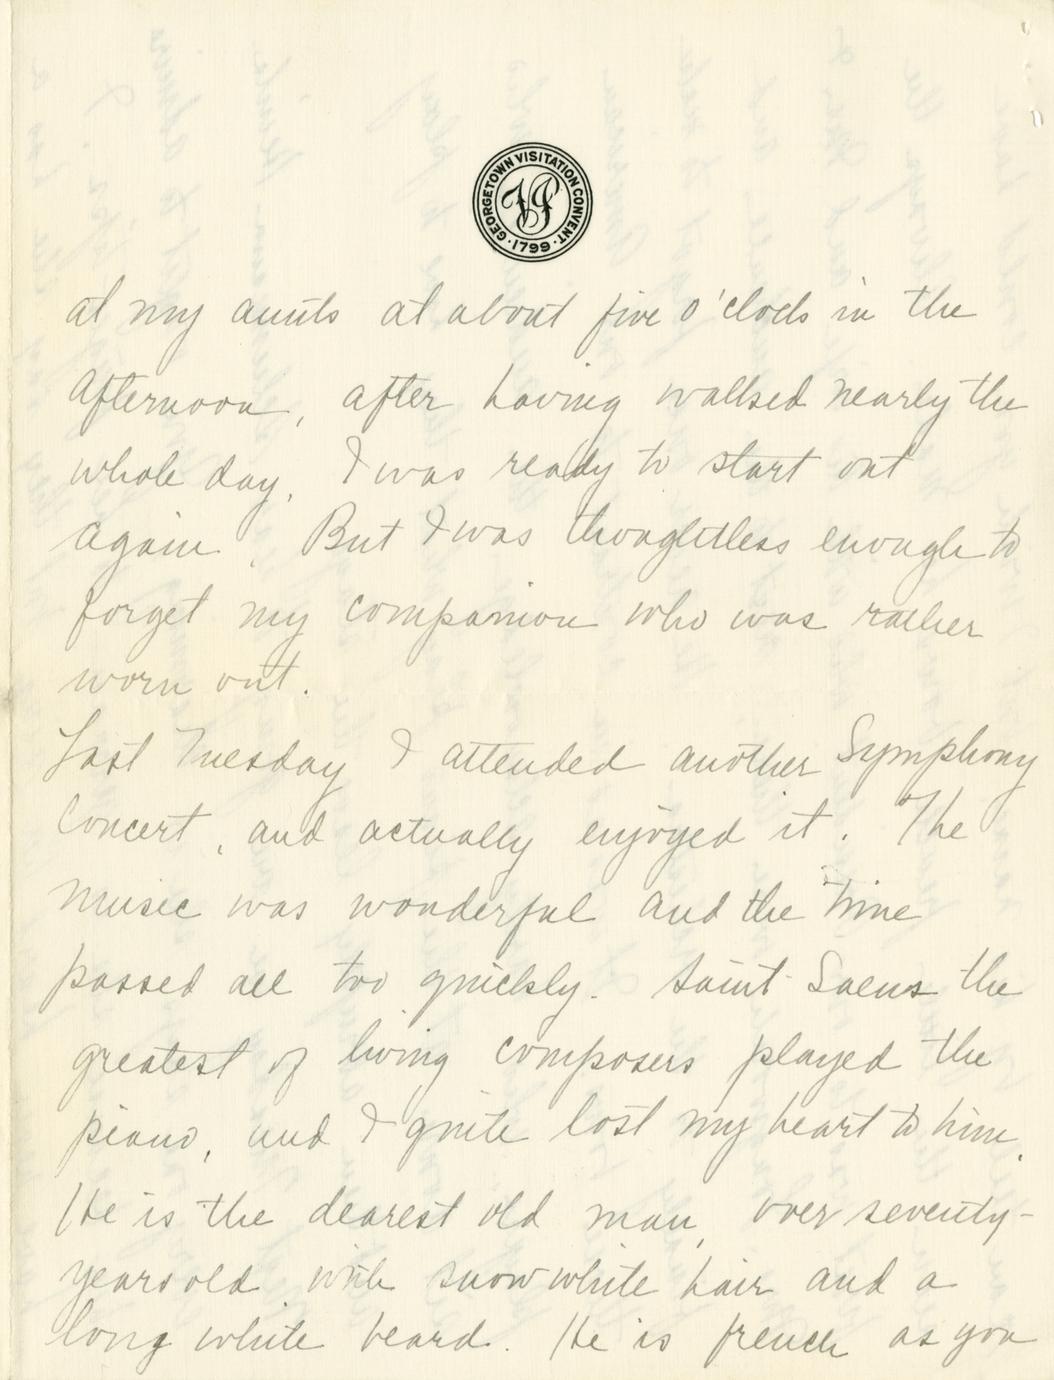 GEORGETOWN VISITATION CONVENT
· 1799 ·
at my aunts at about five o'clock in the
afternoon, after having walked nearly the
whole day, I was ready to start out
again. But I was thoughtless enough to
forget my companion who was rather
worn out.
Last Tuesday I attended another Symphony
Concert, and actually enjoyed it. The
music was wonderful and the time
passed all too quickly. Saint Saens the
greatest of living composers played the
piano, and I quite lost my heart to him.
He is the dearest old man, over seventy-
years old with snow white hair and a
long white beard. He is french as you